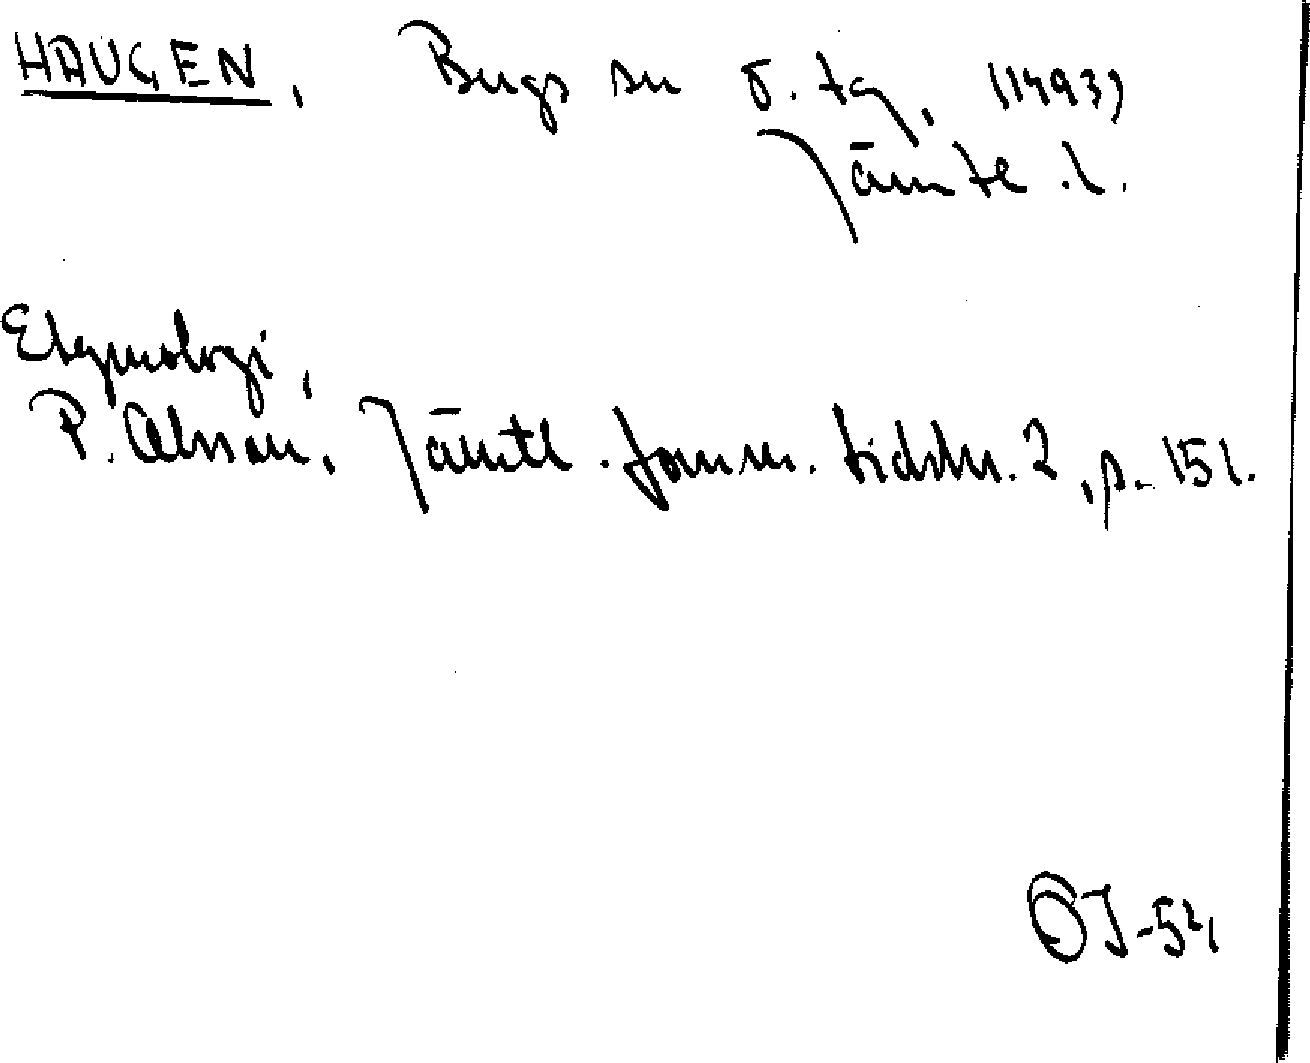 HAUGEN, Bergs sn ö. tg, (1493)
Jämte.l.
Etymologi,
P. Olsson, Jämtl. fornm. tidskr. 2, p. 151.
ÖJ-54